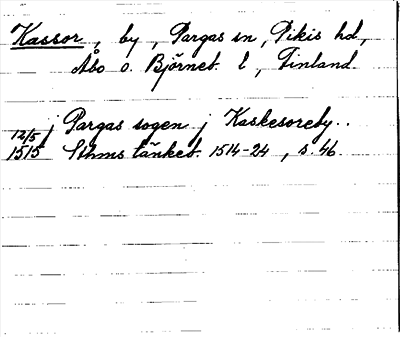 Kassor, by, Pargas sn, Pikis hd,
Åbo o. Björneb. l, Finland.
12/5 j Pargas sogen j Kaskesoreby..
1515 Sthms tänkeb. 1514-24, s. 46.